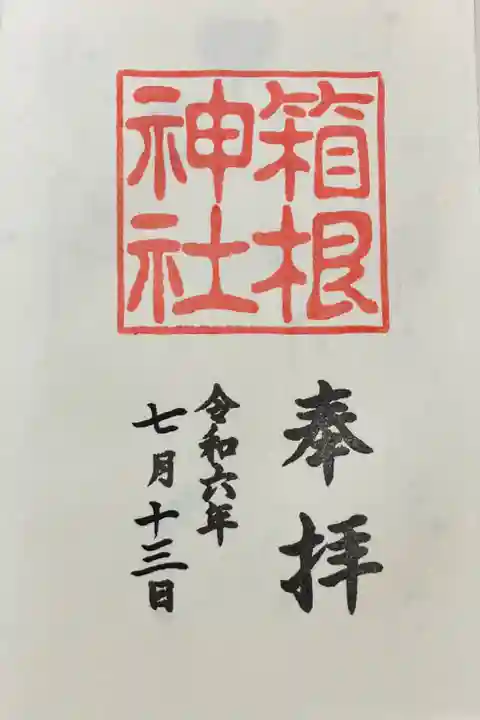 箱根
神社
奉拝
令和六年
七月十三日